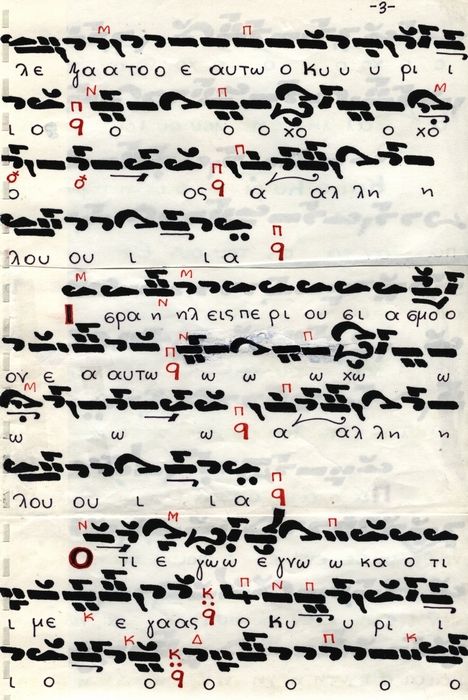 -3-
λε ξα α το ο ε αυτω ο Κυ υ υ ρι ι
ι ο ο ο ο χο ο χο
ο ος α αλ λη η
λου ου ι ι α
Ι σρα η ηλ εις πε ρι ου σι α σμο ο
ον ε α αυτω ω ω ω χω ω
ω ω ω α αλ λη η
λου ου ι ι α
Ο τι ε γω ω ε γνω ω κα ο τι
ι με ε γα ας ο Κυ υ υ ρι ι
ι ο ο ο ο ο